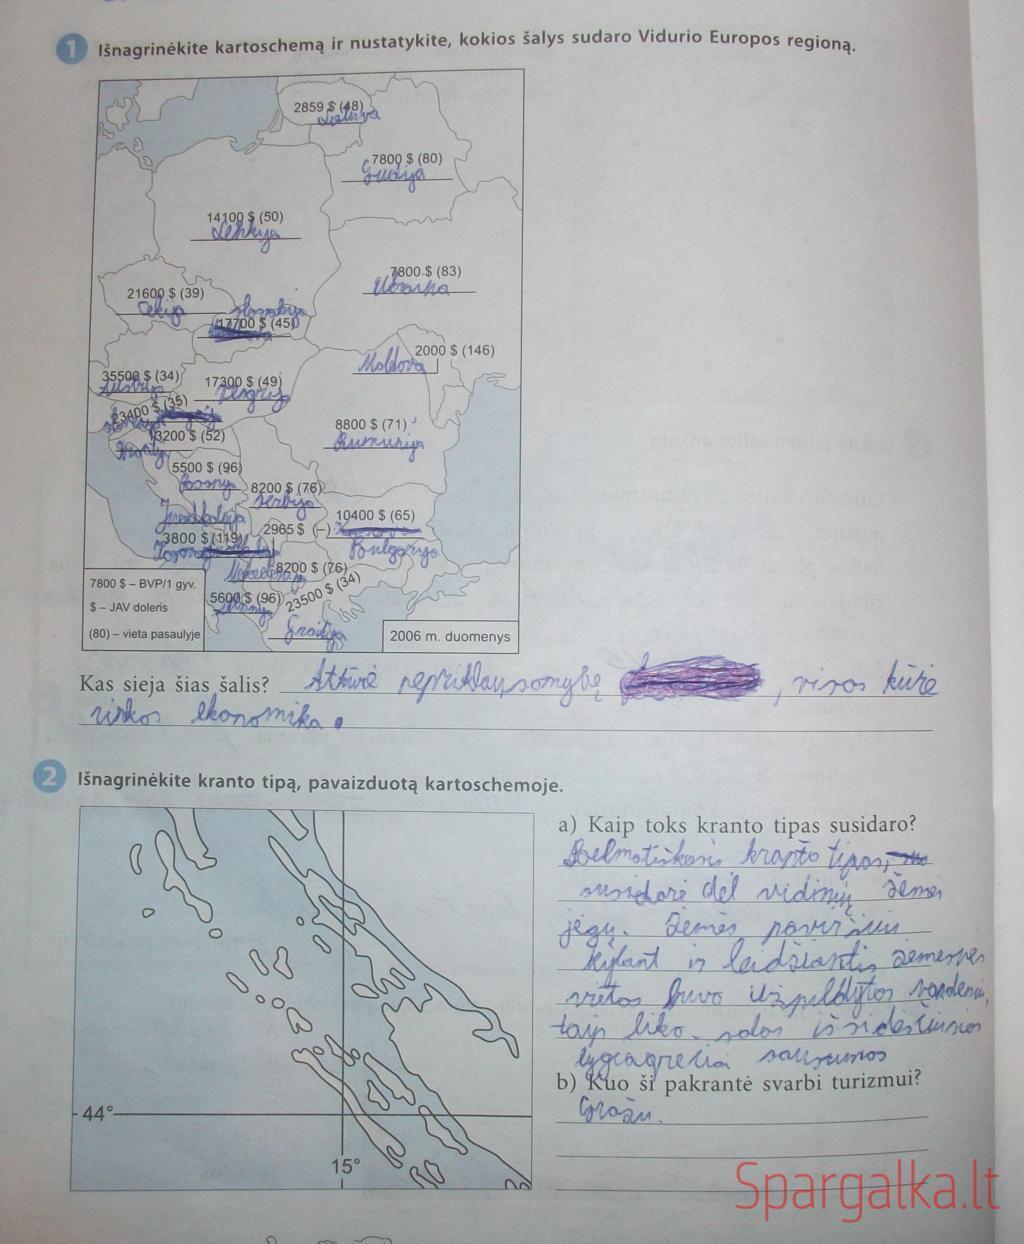 1 Išnagrinėkite kartoschemą ir nustatykite, kokios šalys sudaro Vidurio Europos regioną.
2859 $ (48)
Lietuva
7800 $ (80)
Gudija
14100 $ (50)
Lenkija
7800 $ (83)
Ukraina
21600 $ (39)
Čekija
Slovakija
17700 $ (45)
2000 $ (146)
Moldova
35500 $ (34)
Austrija
17300 $ (49)
Vengrija
23400 $ (35)
8800 $ (71)
Rumunija
13200 $ (52)
Kroatija
5500 $ (96)
Bosnija
8200 $ (76)
Serbija
10400 $ (65)
Bulgarija
Juodkalnija
2965 $ (–)
3800 $ (119)
Kosovas
8200 $ (76)
Makedonija
5600 $ (96)
23500 $ (34)
Graikija
7800 $ – BVP/1 gyv.
$ – JAV doleris
(80) – vieta pasaulyje
2006 m. duomenys
Kas sieja šias šalis? Atkūrė nepriklausomybę, visos kūrė
rinkos ekonomika.
2 Išnagrinėkite kranto tipą, pavaizduotą kartoschemoje.
a) Kaip toks kranto tipas susidaro?
Delmatiškasis kranto tipas,
susidarė dėl vidinių žemės
jėgų. Žemės paviršiui
kylant ir leidžiantis žemesnės
vietos buvo užpildytos vandeniu,
taip liko salos išsidėsčiusios
lygiagrečiai sausumos
b) Kuo ši pakrantė svarbi turizmui?
Gražu.
44°
15°
Spargalka.lt